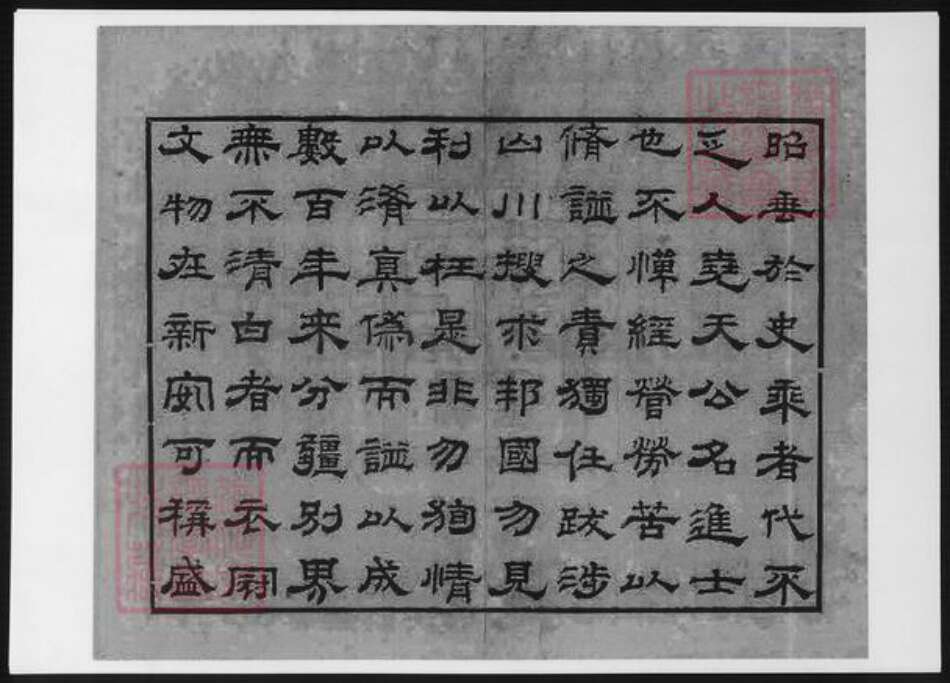 昭垂於史乘者代不
乏人堯天公名進士
也不憚經營勞苦以
脩譜之責獨任跋涉
山川搜求邦國勿見
利以枉是非勿狥情
以淆真偽而譜以成
數百年来分疆別界
無不清白者而衣冠
文物在新安可稱盛